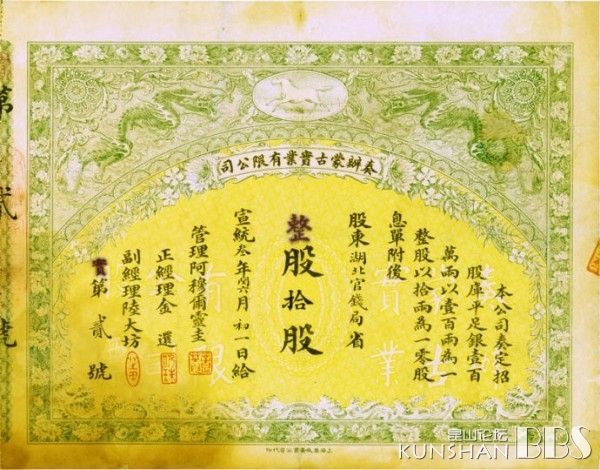 奏辦蒙古實業有限公司
本公司奏定招
股庫平足銀壹百
萬兩以壹百兩為一
整股以拾兩為一零股
息單附後
股東湖北官錢局省
整股拾股
宣統叁年閏六月初一日給
管理阿穆爾靈圭
正經理金還
副經理陸大坊
實第貳號
第貳號
昆山论坛
KUNSHAN BBS